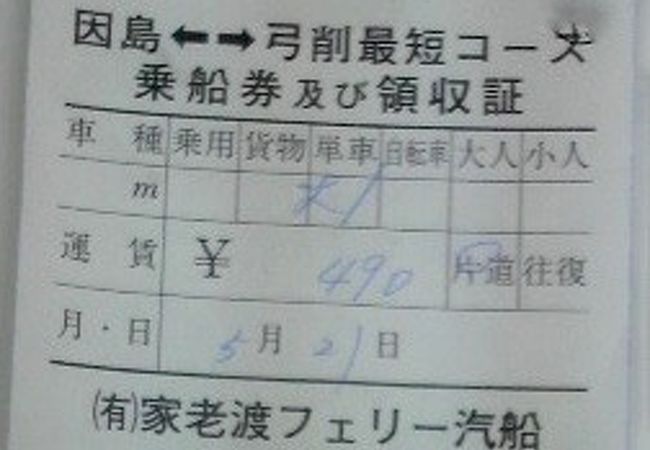 因島⬅➡弓削最短コース
乗船券及び領収証
車種 乗用 貨物 単車 自転車 大人 小人
m 大1
運賃 ¥ 490 片道 往復
月・日 5月21日
㈲家老渡フェリー汽船